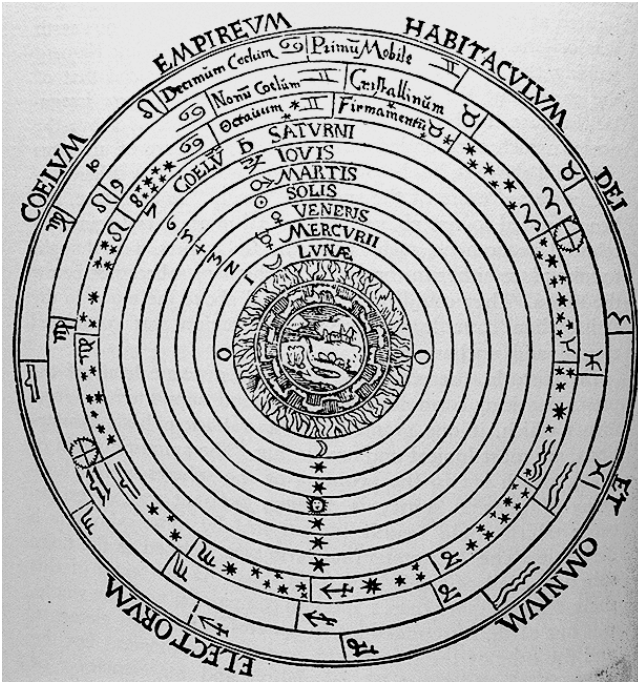 COELVM EMPIREVM HABITACVLVM DEI ET OMNIVM ELECTORVM
Decimum Coelum Primũ Mobile
Nonũ Coelum Cristallinum
Octauum Firmamentũ
COELV̄ SATVRNI
IOVIS
MARTIS
SOLIS
VENERIS
MERCVRII
LVNÆ
10
9
8
7
6
5
4
3
2
1